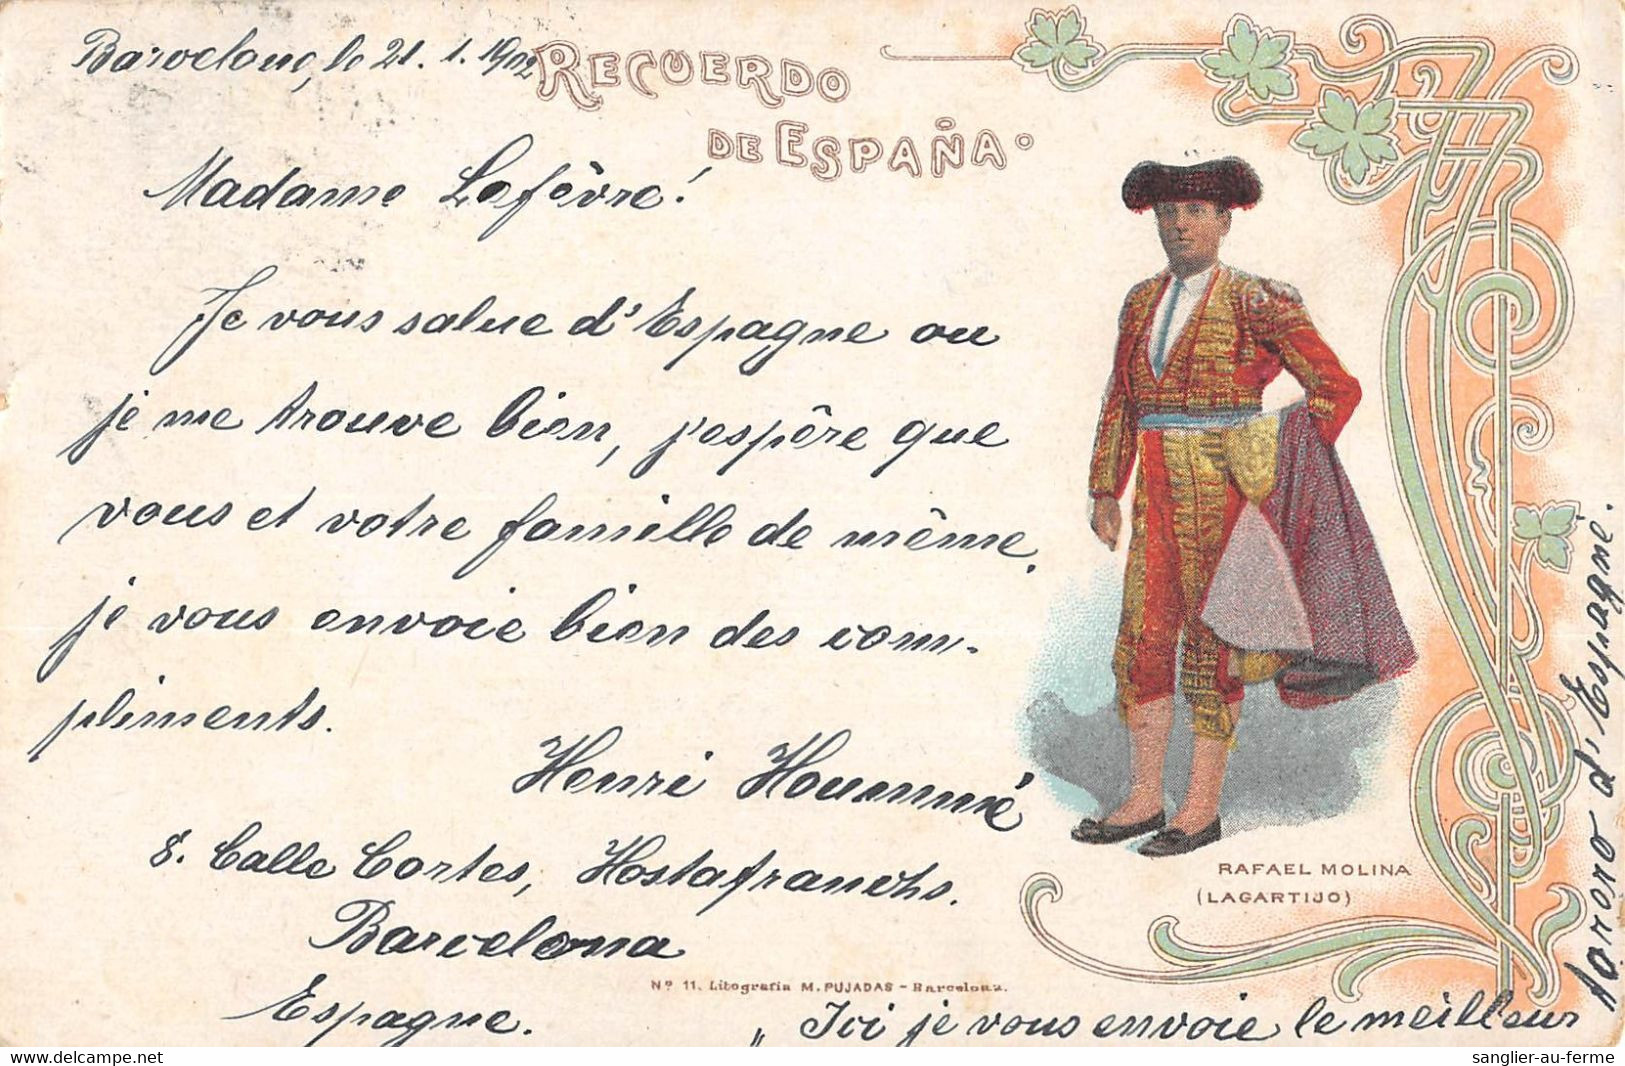 Barcelone, le 21. 1. 1902
RECUERDO
DE ESPAÑA.
Madame Lefèvre!
Je vous salue d'Espagne ou
je me trouve bien, j'espère que
vous et votre famille de même,
je vous envoie bien des com-
pliments.
Henri
8. Calle Cortes, Hostafranchs.
Barcelona
Espagne.
RAFAEL MOLINA
(LAGARTIJO)
Nº 11. Litografia M. PUJADAS - Barcelona.
„ Ici je vous envoie le meilleur
torero d'Espagne.
sanglier-au-ferme